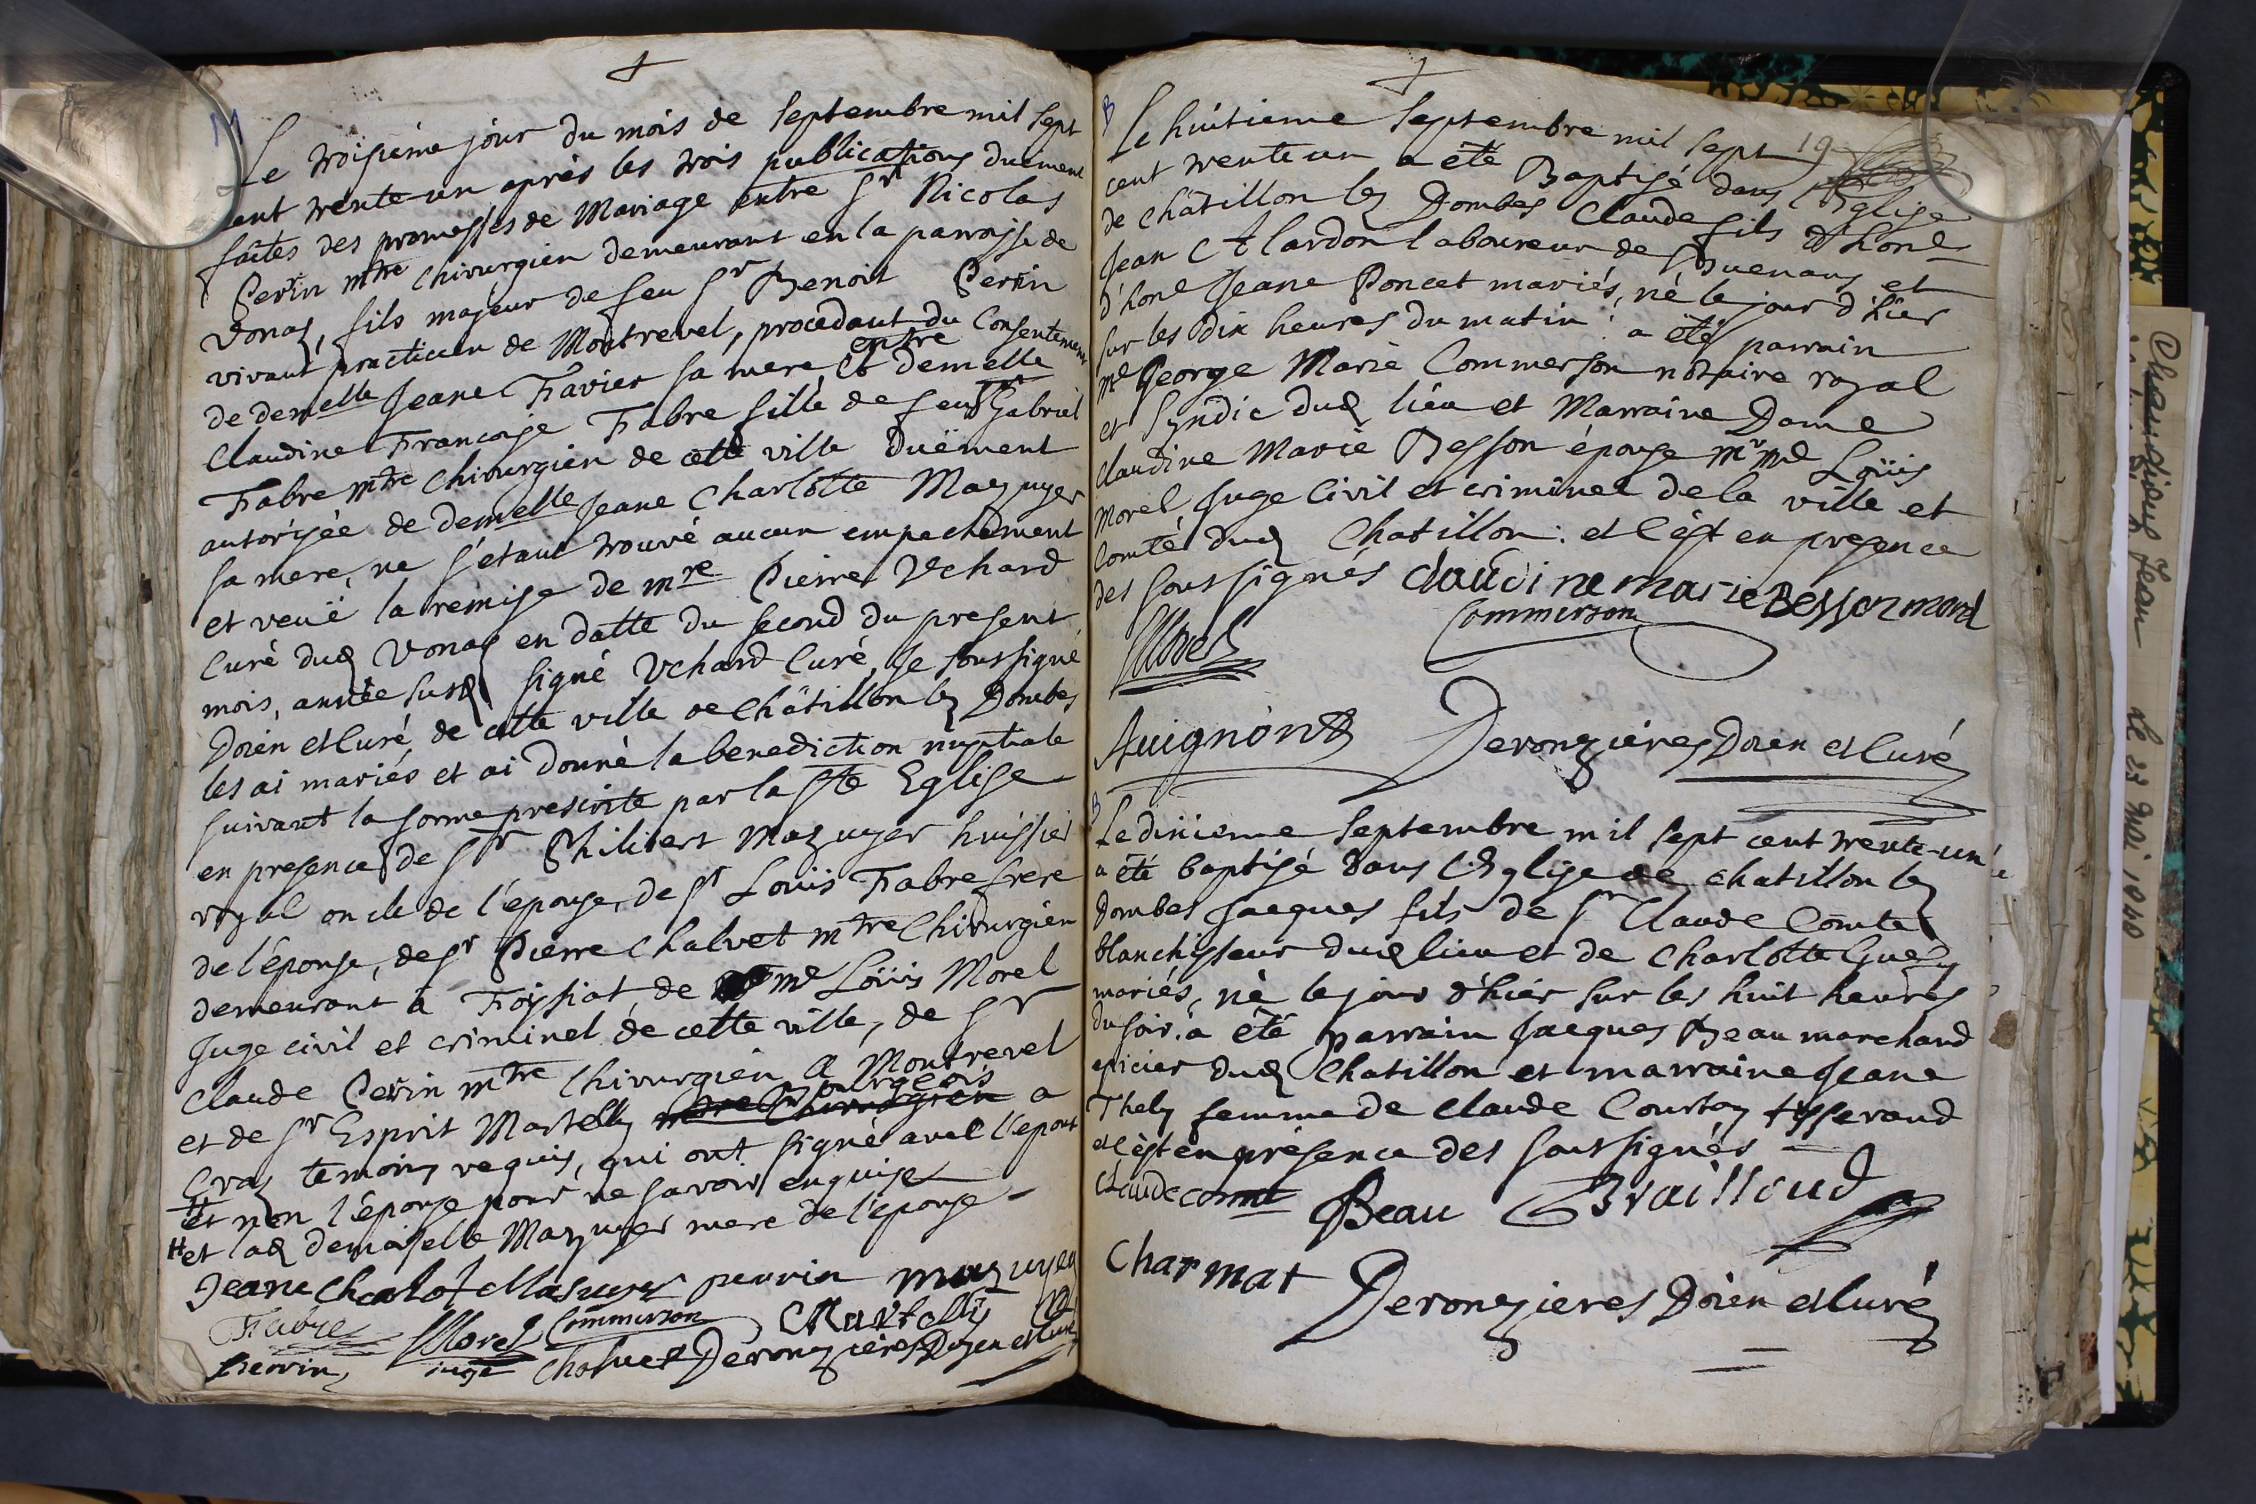 M
Le troisiéme jour du mois de septembre mil sept
cent trente-un après les trois publications duement
faites des promesses de Mariage entre Sr Nicolas
Perrin mtre chirurgien demeurant en la parroisse de
Vonaz, fils majeur de feu Sr Benoit Perrin
vivant practicien de Montrevel, procedant du Consentement
de demelle Jeane Favier sa mere et entre demelle
Claudine Francoise Fabre fille de feu Sr Gabriel
Fabre mtre Chirurgien de cette ville Duëment
autorisée de demelle Jeane Charlotte Mazuyer
sa mere, ne s'etant trouvé aucun empechement
et veuë la remise de mre Pierre Vchard
Curé dud Vonaz en datte du second du present
mois, année susd signé Vchard Curé, Je soussigné
Doïen et Curé de cette ville de Châtillon lez Dombes
les ai mariés et ai donné la benediction nuptiale
suivant la forme prescritte par la Ste Eglise
en presence de Sr Philibert Mazuyer huissier
royal oncle de l'epouse, de Sr Loüis Fabre frere
de l'épouse, de Sr Pierre Chalvet mtre Chirurgien
demeurant à Foissiat, de me Loüis Morel
Juge civil et criminel de cette ville, de Sr
Claude Perrin mtre Chirurgien à Montrevel
et de Sr Esprit Martelly Bourgeois a
Craz temoins requis, qui ont signé avec l'epoux
H et non l'épouse pour ne savoir enquise
H et lad demoiselle Mazuyer mere de l'épouse
Jeane Charlot Masuyer perrin mazuyer
Fabre Morel Commerson Martelly
perrin juge Chalvet Deronzieres Doyen et Curé
19
B
Le huitieme Septembre mil sept
cent trente un a été Baptisé dans l'Eglise
de châtillon lez Dombes Claude fils d'honle
Jean Ct lardon laboureur de et
d'honle Jeane Poncet mariés, né le jour d'hier
sur les dix heures du matin: a été parrain
me George Marie Commerson notaire royal
et Syndic dud lieu et Marraine Dame
Claudine Marie Besson épouse mr me Loüis
Morel Juge Civil et criminel de la ville et
Comté dud Chatillon: et c'est en presence
des soussignés claudine marie Besson morel
Commerson
Morel
Avignon Deronzieres Doïen et Curé
B
Le dixieme Septembre mil sept cent trente-un
a été baptisé dans l'Eglise de chatillon lez
Dombes Jacques fils de Sr Claude Comte
blanchisseur dud lieu et de Charlotte
mariés, né le jour d'hier sur les huit heures
du soir: a été parrain Jacques Beau marchand
epicier dud Chatillon et marraine Jeane
Thely femme de Claude Courtoy tisserand
et c'est en présence des soussignés
Claude comte Beau Brailloud
Charmat Deronzieres Doïen et Curé
Jean Le 23 Mai 1040